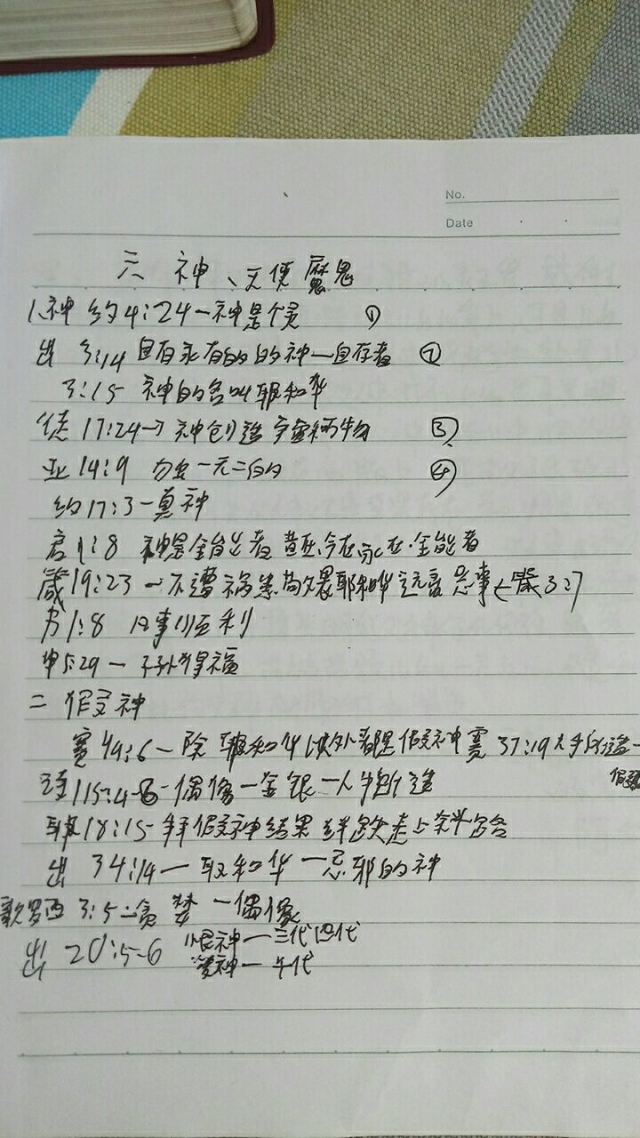 No.
Date
六 神、天使魔鬼
1、神 约4:24一神是个灵 ①
出 3:14 自有永有的的神一自存者 ②
3:15 神的名叫耶和华
徒 17:24→神创造宇宙万物 ③
亚 14:9 独一无二的 ④
约17:3一真神
启 1:8 神是全能者 昔在、今在永在·全能者
箴19:23 一不遭祸患 敬畏耶和华 远离恶事(箴3:7
书1:8 凡事顺利
申5:29一子孙得福
二 假神
赛44:6一除耶和华以外都是假神 赛37:19人手所造一
假神
诗115:4-8一偶像一金银一人手所造
耶18:15拜假神结果 跌 走
出 34:14一耶和华一忌邪的神
歌罗西 3:5二贪婪一偶像
出 20:5-6 恨神一三代四代
爱神一千代